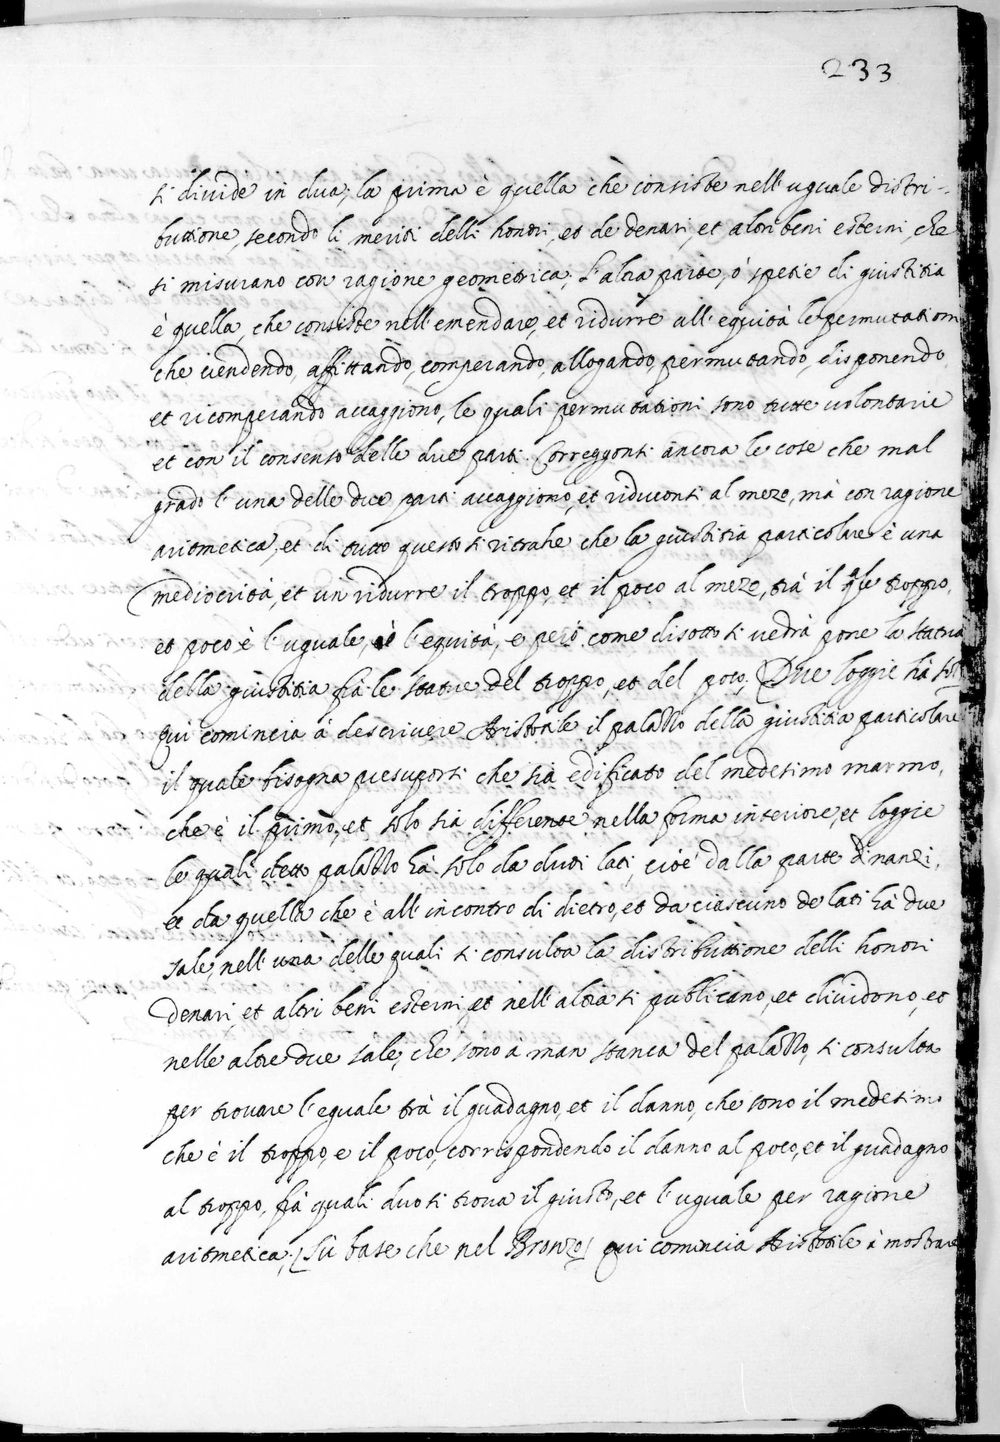 233
si divide in dua, la prima è quella che consiste nell'uguale distri-
buttione, secondo li meriti delli honori, et de denari, et altri beni esterni, che
si misurano con ragione geometrica; l'altra parte, ò spetie di giustitia
è quella, che consiste nell'emendare, et ridurre all'equità le permutationi
che vendendo, affittando, comperando, allogando, permutando, disponendo
et ricomperando accaggiono, le quali permutationi sono tutte volontarie
et con il consenso delle due parti. Correggonsi ancora le cose che mal
grado l'una delle due parti accaggiono, et riduconsi al mezo, mà con ragione
aritmetica, et di tutto questo si ritrahe che la giustitia particolare è una
mediocrità, et un ridurre il troppo, et il poco al mezo, trà il qle troppo,
et poco è l'uguale, è l'equità, e però come di sotto si vedrà pone la statua
della giustitia frà le statue del troppo, et del poco. (Due loggie hà sol)
qui comincia à descrivere Aristotile il palazzo della giustitia particolare
il quale bisogna presuporsi che sia edificato del medesimo marmo,
che è il primo, et solo sia differente nella forma interiore, et loggie
le quali detto palazzo hà solo da duoi lati, cioè dalla parte dinanzi,
et da quella che è all'incontro di dietro, et da ciascuno de lati hà due
sale, nell'una delle quali si consulta la distributtione delli honori
denari, et altri beni esterni, et nell'altra si publicano, et dividono, et
nelle altre due sale, che sono à man stanca del palazzo, si consulta
per trovare l'eguale trà il guadagno, et il danno, che sono il medesimo
che è il troppo, e il poco, corrispondendo il danno al poco, et il guadagno
al troppo, frà quali duo si trova il giusto, et l'uguale per ragione
aritmetica. (Sù base che nel Bronzo) qui comincia Aristotile à mostrare